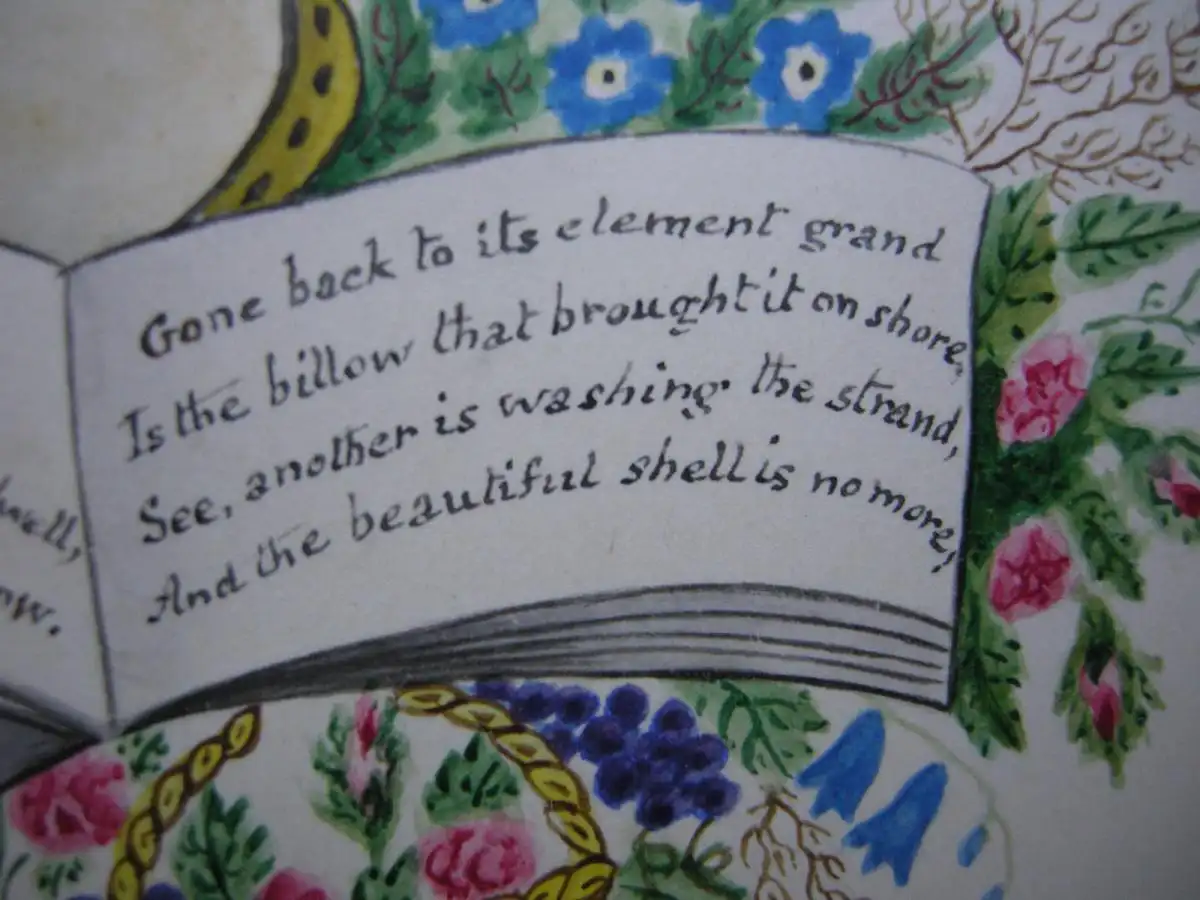 Gone back to its element grand
Is the billow that brought it on shore,
See, another is washing the strand,
And the beautiful shell is no more,
ow.